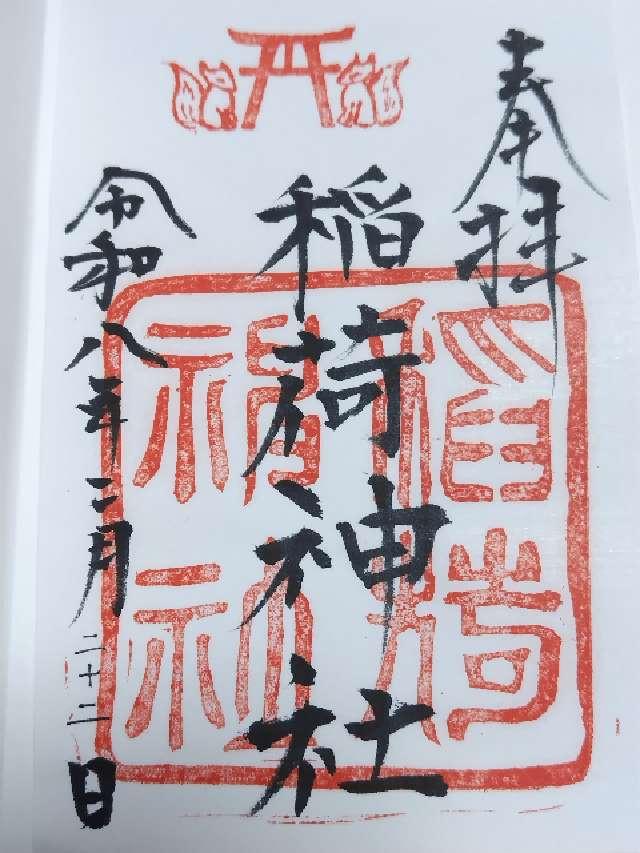 奉拝
稲荷神社
令和八年二月二十二日
稲荷
神社